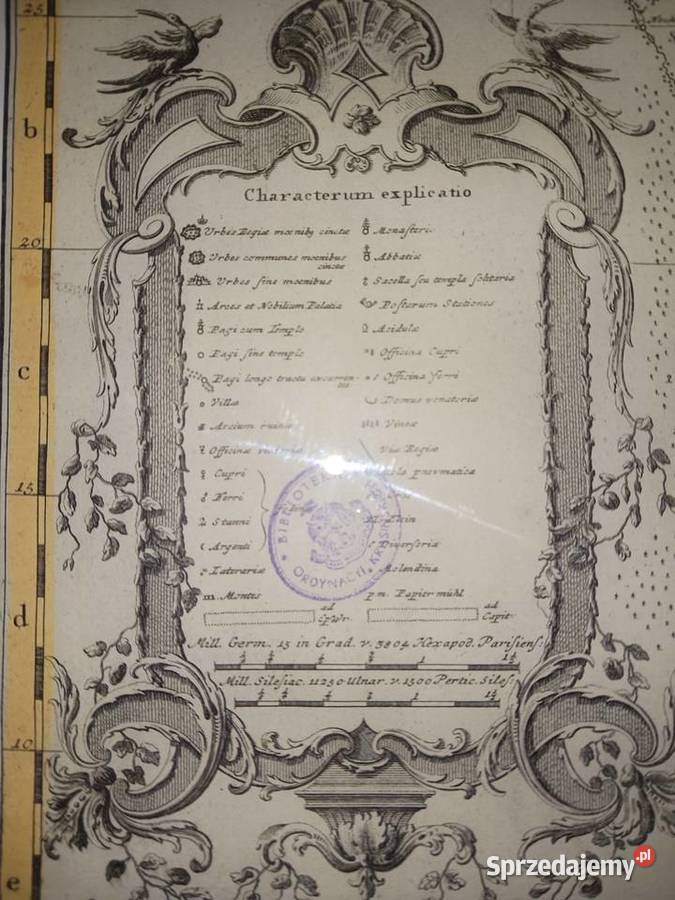 25
b
20
c
15
d
10
e
Characterum explicatio
Urbes Regiæ mœnibꝫ cinctæ
Urbes communes mœnibus
cinctæ
Urbes sine mœnibus
Arces et Nobilium Palatia
Pagi cum Templo
Pagi sine templo
Pagi longo tractu excurren-
tes
Villæ
Arcium ruinæ
Officinæ vitriariæ
Cupri
Ferri
Stanni
Argenti
Laterariæ
m. Montes
Monasteria
Abbatiæ
Sacella seu templa solitaria
Postarum Stationes
Acidulæ
Officina Cupri
Officina Ferri
Domus venatoriæ
Vineæ
Via Regiæ
pnevmatica
Diversoria
Molendina
p.m. Papier mühl
ad
Cp Wr.
ad
Capit.
Mill. Germ. 15 in Grad. v. 3804 Hexapod. Parisiens.
1
Mill. Silesiac. 11250 Ulnar. v. 1500 Pertic. Siles.
1
BIBLIOTEKA
ORDYNACJI KRASIŃSKICH
Sprzedajemy.pl